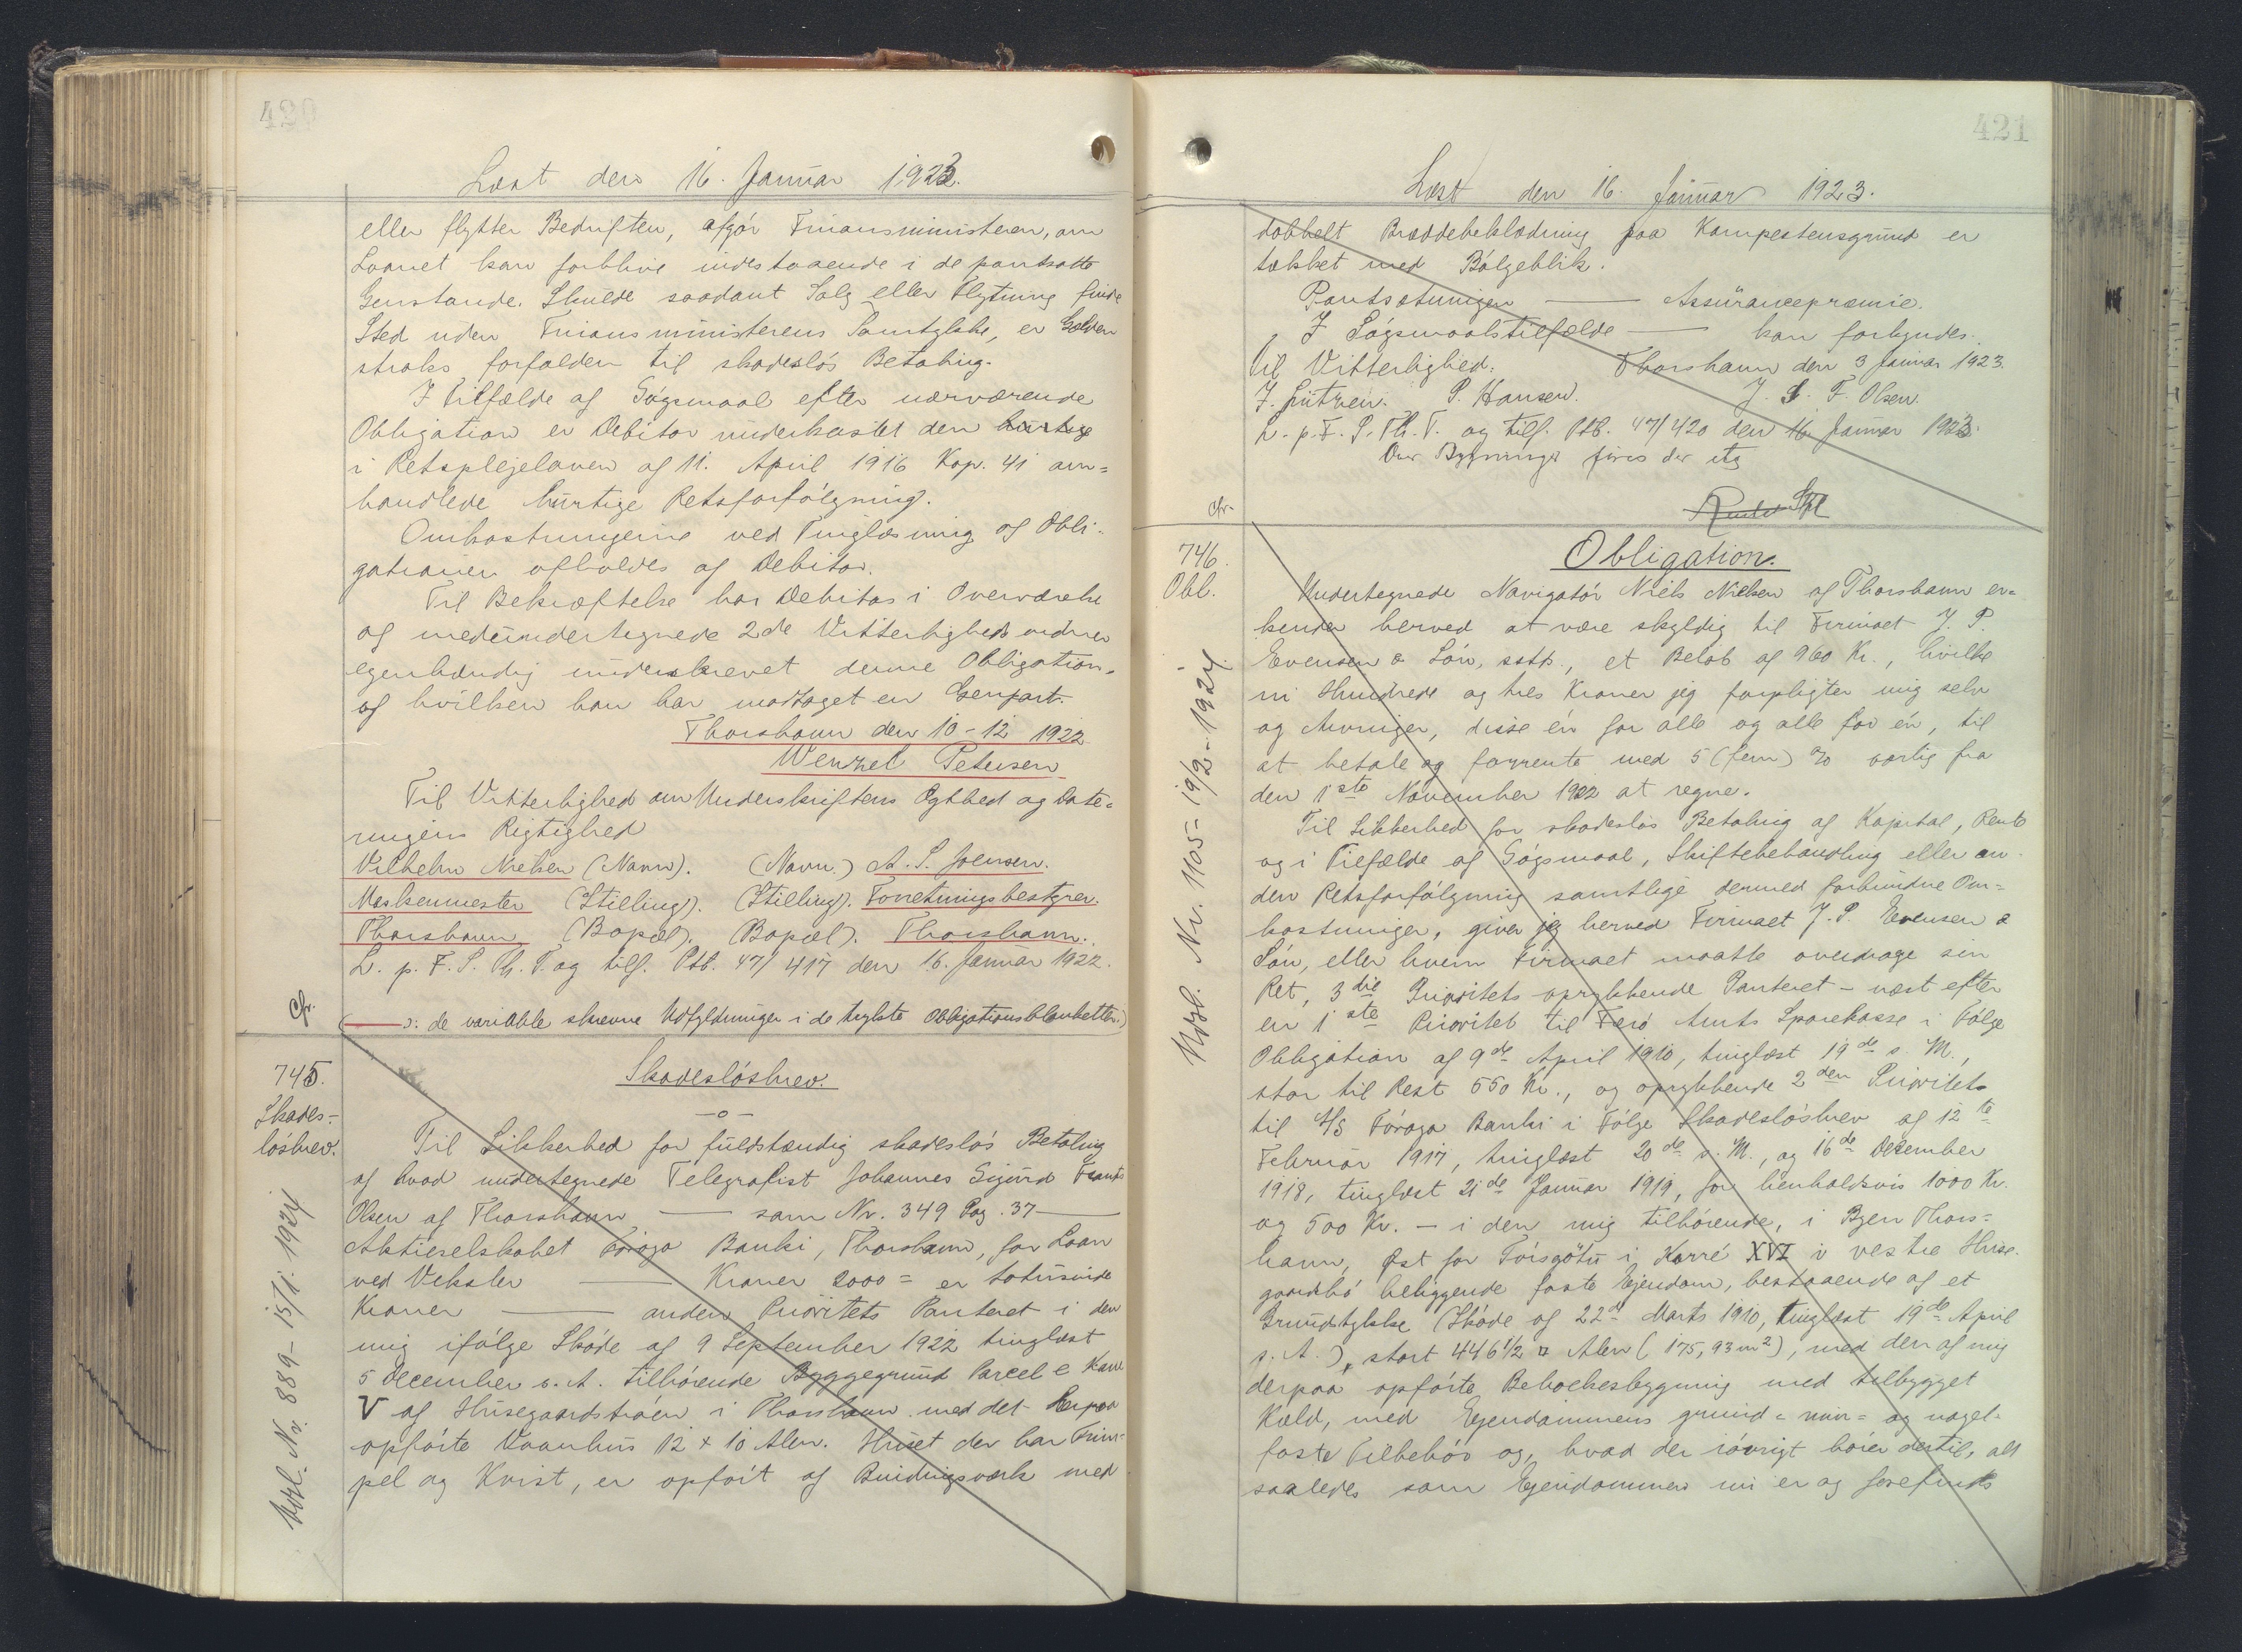 420
Læst den 16. Januar 1923.
eller flytter Bedriften, afgór Finansministeren, om
Laanet kan forblive indestaaende i de pantsatte
Genstande. Skulde saadant Salg eller Flytning finde
Sted uden Finansministerens Samtykke, er Gælden
straks forfalden til skadesløs Betaling.
I Tilfælde af Sógsmaal efter nærværende
Obligation er Debitor underkastet den hurtige
i Retsplejeloven af 11. April 1916 Kap. 41 om=
handlede hurtige Retsforfólgning.
Omkostningerne ved Tinglæsning af Obli-
gationen afholdes af Debitor.
Til Bekræftelse har Debitor i Overværelse
og medundertegnede 2de Vitterlighedsvidner
egenhændig underskrevet denne Obligation,
af hvilken han har modtaget en Genpart.
Thorshavn den 10-12 1922
Wenzel Petersen
Til Vitterlighed om Underskriftens Ægthed og Date=
ringens Rigtighed
Vilhelm Nielsen (Navn). (Navn.) A. S. Joensen.
Maskinmester (Stilling). (Stilling). Forretningsbestyrer.
Thorshavn (Bopæl). (Bopæl). Thorshavn.
L. p. F. S. Th. T. og tilf. Ptb. 47/417 den 16. Januar 1922.
Cfr.
( ɔ: de variable skrevne Udfyldninger i de trykte Obligationsblanketter.)
745.
Skades-
lósbrev.
Udsl. Nr. 889 - 15/1. 1924
Skadeslósbrev.
—o—
Til Sikkerhed for fuldstændig skadeslós Betaling
af hvad undertegnede Telegrafist Johannes Sigurd Frants
Olsen af Thorshavn — som Nr. 349 Pag. 37 —
Aktieselskabet Fóroya Banki, Thorshavn, for Laan
ved Veksler — Kroner 2000 = er totusinde
Kroner — anden Prioritets Panteret i den
mig ifólge Skóde af 9 September 1922 tinglæst
5 December s. A. tilhórende Byggegrund Parcel e Karré
V af Husegaardstraóen i Thorshavn med det derpaa
opfórte Vaanhus 12 x 10 Alen. Huset der har Frim-
pel og Kvist, er opfórt af Bindingsværk med
421
Læst den 16. Januar 1923.
dobbelt Bræddebeklædning paa Kampestensgrund er
tækket med Bólgeblik.
Pantsætningen — Assurancepræmie.
I Sógsmaalstilfælde — kan forkyndes.
Til Vitterlighed: Thorshavn den 3 Januar 1923.
J. Lützen. P. Hansen. J. S. F. Olsen.
L. p. F. S. Th. T. og tilf. Ptb. 47/420 den 16. Januar 1923.
Om Bygninger
Cfr.
746.
Obl.
Udsl. Nr. 1105 - 19/2 - 1924
Obligation.
Undertegnede Navigatór Niels Nielsen af Thorshavn er=
kender herved at være skyldig til Firmaet J. P.
Evensen & Són, sstd., et Belób af 960 Kr., hvilke
ni Hundrede og tres Kroner jeg forpligter mig selv
og Arvinger, disse én for alle og alle for én, til
at betale og forrente med 5 (fem) % aarlig fra
den 1ste November 1922 at regne.
Til Sikkerhed for skadeslós Betaling af Kapital, Rente
og i Tilfælde af Sógsmaal, Skiftebehandling eller an-
den Retsforfólgning samtlige dermed forbundne Om=
kostninger, giver jeg herved Firmaet J. P. Evensen &
Són, eller hvem Firmaet maatte overdrage sin
Ret, 3die Prioritets oprykkende Panteret - næst efter
en 1ste Prioritet til Færó Amts Sparekasse i Fólge
Obligation af 9de April 1910, tinglæst 19de s. M.,
stor til Rest 550 Kr., og oprykkende 2den Prioritet
til A/S Fóroya Banki i Fólge Skadeslósbrev af 12te
Februar 1917, tinglæst 20de s. M., og 16de December
1918, tinglæst 21de Januar 1919, for henholdsvis 1000 Kr.
og 500 Kr. - i den mig tilhórende, i Byen Thors=
havn, Øst for Tórsgótu i Karré XVI i vestre Huse-
gaardsbó beliggende faste Ejendom, bestaaende af et
Grundstykke (Skóde af 22de Marts 1910, tinglæst 19de April
s. A.), stort 446½ □ Alen (175,93 m²), med den af mig
derpaa opfórte Beboelsesbygning med tilbygget
Kæld, med Ejendommens grund- mur- og nagel-
faste Tilbehór og, hvad der ióvrigt hórer dertil, alt
saaledes som Ejendommen nu er og forefindes